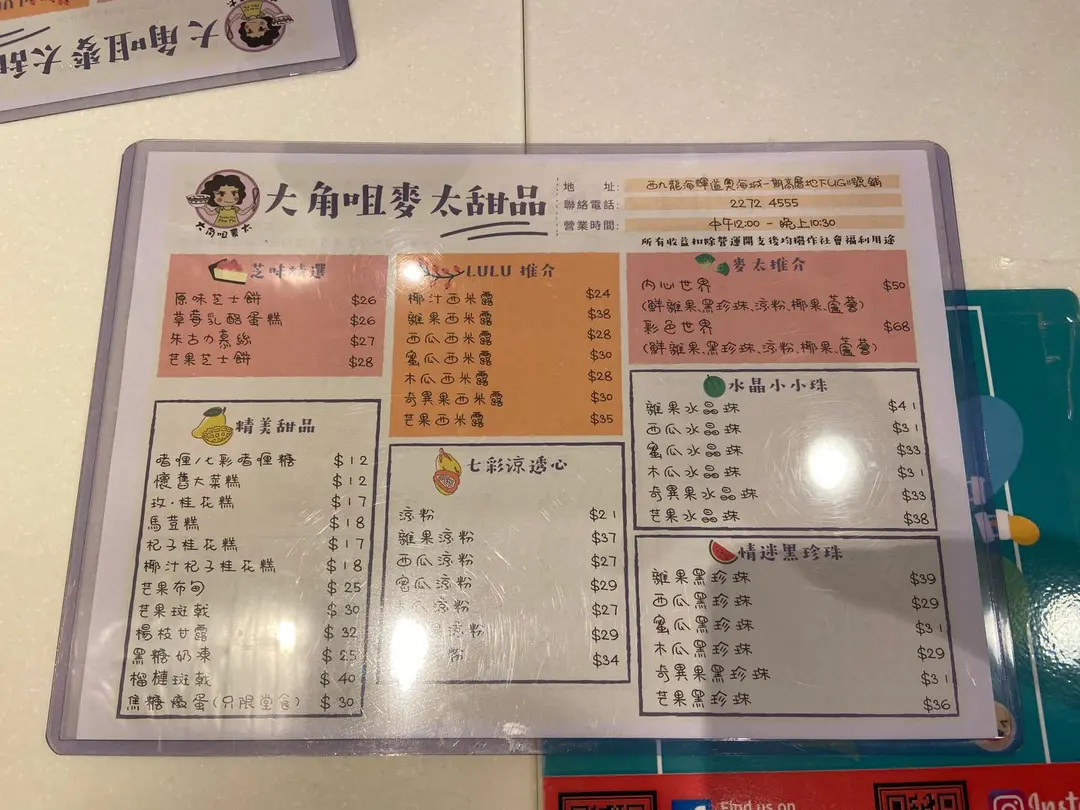 大角咀麥太甜品
大角咀麥太
地 址: 西九龍海輝道奧海城一期高層地下UG11號舖
聯絡電話: 2272 4555
營業時間: 中午12:00 - 晚上10:30
所有收益扣除營運開支後均撥作社會福利用途
芝味精選
原味芝士餅 $26
草莓乳酪蛋糕 $26
朱古力慕絲 $27
芒果芝士餅 $28
LULU 推介
椰汁西米露 $24
雜果西米露 $38
西瓜西米露 $28
蜜瓜西米露 $30
木瓜西米露 $28
奇異果西米露 $30
芒果西米露 $35
麥太推介
內心世界 $50
(鮮雜果,黑珍珠,涼粉,椰果,蘆薈)
彩色世界 $68
(鮮雜果,黑珍珠,涼粉,椰果,蘆薈)
精美甜品
啫喱/七彩啫喱糖 $12
懷舊大菜糕 $12
玫·桂花糕 $17
馬荳糕 $18
杞子桂花糕 $17
椰汁杞子桂花糕 $18
芒果布甸 $25
芒果班戟 $30
楊枝甘露 $32
黑糖奶凍 $25
榴槤班戟 $40
焦糖燉蛋(只限堂食) $30
七彩涼透心
涼粉 $21
雜果涼粉 $37
西瓜涼粉 $27
蜜瓜涼粉 $29
涼粉 $27
涼粉 $29
粉 $34
水晶小小珠
雜果水晶珠 $41
西瓜水晶珠 $31
蜜瓜水晶珠 $33
木瓜水晶珠 $31
奇異果水晶珠 $33
芒果水晶珠 $38
情迷黑珍珠
雜果黑珍珠 $39
西瓜黑珍珠 $29
蜜瓜黑珍珠 $31
木瓜黑珍珠 $29
奇異果黑珍珠 $31
芒果黑珍珠 $36
Find us on
Inst